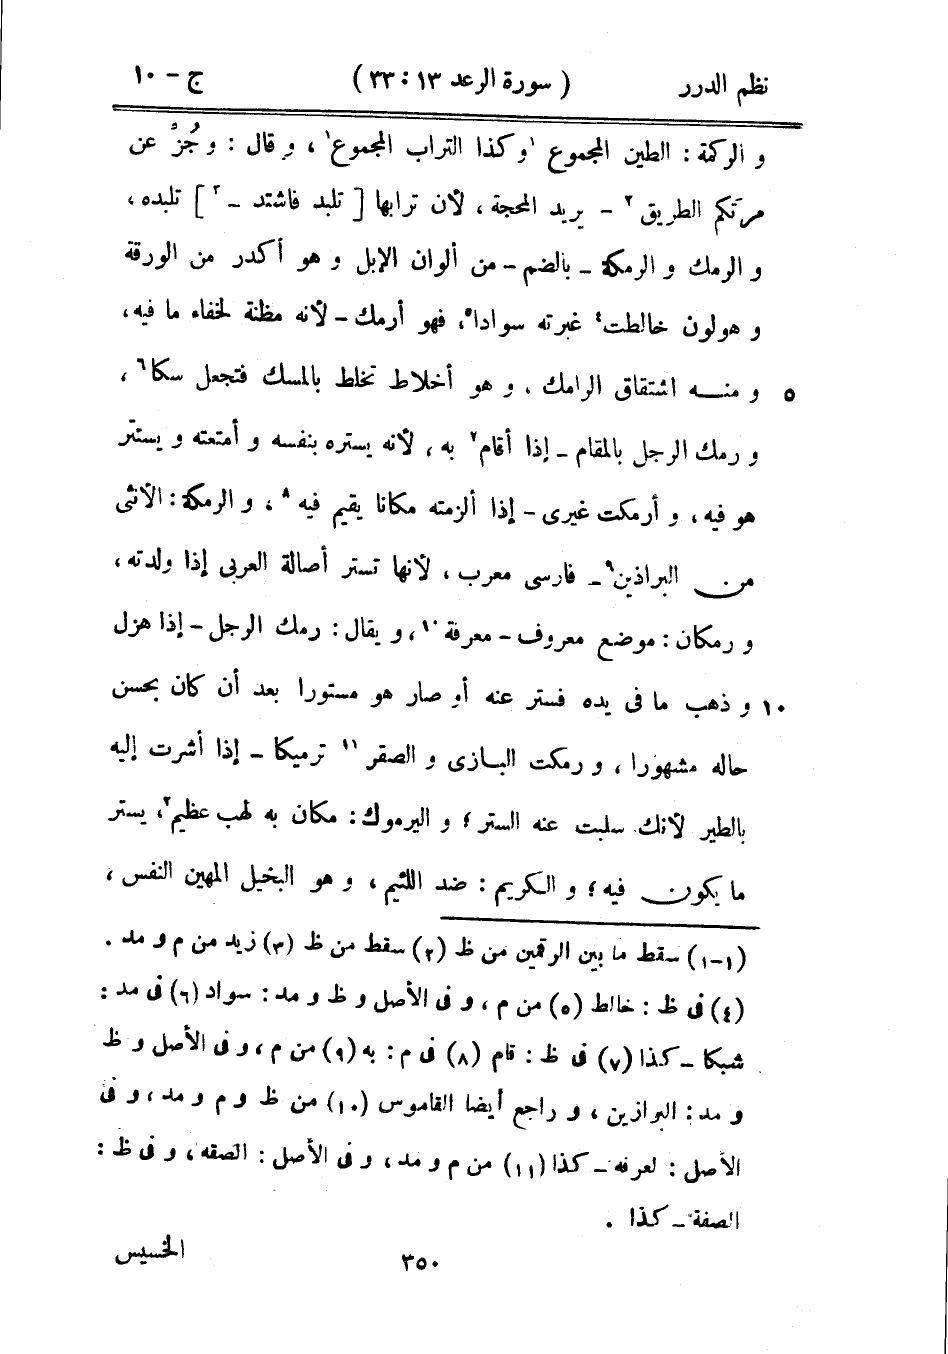 نظم الدرر ( سورة الرعد ١٣ : ٣٣ ) ج - ١٠
و الركمة : الطين المجموع ١و كذا التراب المجموع١ ، و قال : و جُزْ عن
مرتكم الطريق٢ - يريد المحجة ، لأن ترابها [ تلبد فاشتد - ٣ ] تلبده ،
و الرمك و الرمكة - بالضم - من ألوان الإبل و هو أكدر من الورقة
و هو لون خالطت٤ غبرته سوادا٥ ، فهو أرمك - لأنه مظنة لخفاء ما فيه ،
٥ و منه اشتقاق الرامك . و هو أخلاط تخلط بالمسك فتجعل سكا٦ ،
و رمك الرجل بالمقام - إذا أقام٧ به ، لأنه يستره بنفسه و أمتعته و يستتر
هو فيه ، و أرمكت غيرى - إذا ألزمته مكانا يقيم فيه٨ ، و الرمكة : الأنثى
من البراذين٩ - فارسى معرب ، لأنها تستر أصالة العربى إذا ولدته ،
و رمكان : موضع معروف - معرفة١٠ ، و يقال : رمك الرجل - إذا هزل
١٠ و ذهب ما فى يده فستر عنه أو صار هو مستورا بعد أن كان بحسن
حاله مشهورا ، و رمكت البازى و الصقر١١ ترميكا - إذا أشرت إليه
بالطير لأنك سلبت عنه الستر ؛ و اليرموك : مكان به لهب عظيم٢ ، يستر
ما يكون فيه ؛ و الكريم : ضد اللئيم ، و هو البخيل المهين النفس ،
(١-١) سقط ما بين الرقمين من ظ (٢) سقط من ظ (٣) زيد من م و مد .
(٤) فى ظ : خالط (٥) من م ، و فى الأصل و ظ و مد : سواد (٦) فى مد :
شبكا - كذا (٧) فى ظ : قام (٨) فى م : به (٩) من م ، و فى الأصل و ظ
و مد : البرازين ، و راجع أيضا القاموس (١٠) من ظ و م و مد ، و فى
الأصل : لعرفه - كذا (١١) من م و مد ، و فى الأصل : الصقه ، و فى ظ :
الصفة - كذا .
٣٥٠ الخسيس